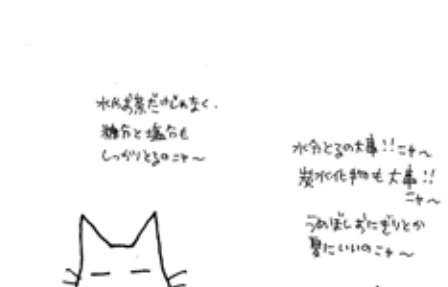 水やお茶だけじゃなく、
糖分と塩分も
しっかりとるのニャ〜
水分とるの大事!!ニャ〜
炭水化物も大事!!
ニャ〜
うめぼしおにぎりとか
夏にいいのニャ〜